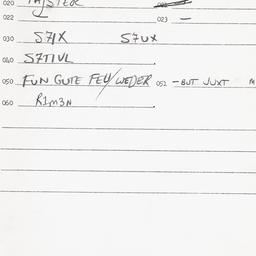 020 MYSTER
022 023 —
030 S7IX S7UX
040 S7TIVL
050 FUN GUTE FEU/WEDER 051 -BUT JUXT
060 R1M3N